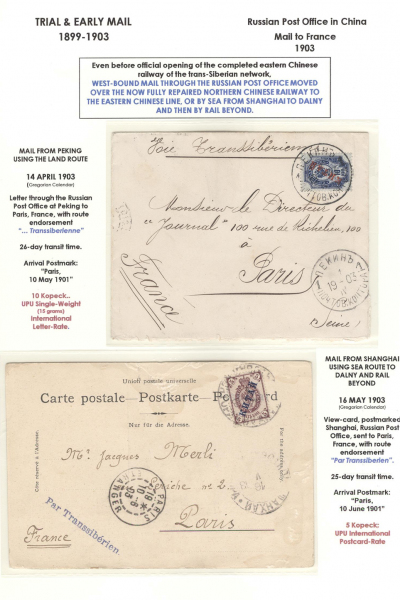 TRIAL & EARLY MAIL
1899-1903
Russian Post Office in China
Mail to France
1903
Even before official opening of the completed eastern Chinese
railway of the trans-Siberian network,
WEST-BOUND MAIL THROUGH THE RUSSIAN POST OFFICE MOVED
OVER THE NOW FULLY REPAIRED NORTHERN CHINESE RAILWAY TO
THE EASTERN CHINESE LINE, OR BY SEA FROM SHANGHAI TO DALNY
AND THEN BY RAIL BEYOND.
MAIL FROM PEKING
USING THE LAND ROUTE
14 APRIL 1903
(Gregorian Calendar)
Letter through the Russian
Post Office at Peking to
Paris, France, with route
endorsement
"... Transsiberienne"
26-day transit time.
Arrival Postmark:
"Paris,
10 May 1901"
10 Kopeck..
UPU Single-Weight
(15 grams)
International
Letter-Rate.
Voie Transsibérienne
ПЕКИНЪ
Monsieur le Directeur du
"Journal" 100 rue de Richelieu, 100
à
Paris
France
Seine
ПЕКИНЪ
19-03
Union postale universelle
Carte postale – Postkarte – P
Nur für die Adresse.
Côté réservé à l'Adresse.
For the address only
Mr Jacques Merli
2
Paris
France
PARIS
ETRANGER
Par Transsibérien
MAIL FROM SHANGHAI
USING SEA ROUTE TO
DALNY AND RAIL
BEYOND
16 MAY 1903
(Gregorian Calendar)
View-card, postmarked
Shanghai, Russian Post
Office, sent to Paris,
France, with route
endorsement
"Par Transsibérien".
25-day transit time.
Arrival Postmark:
"Paris,
10 June 1901"
5 Kopeck:
UPU International
Postcard-Rate